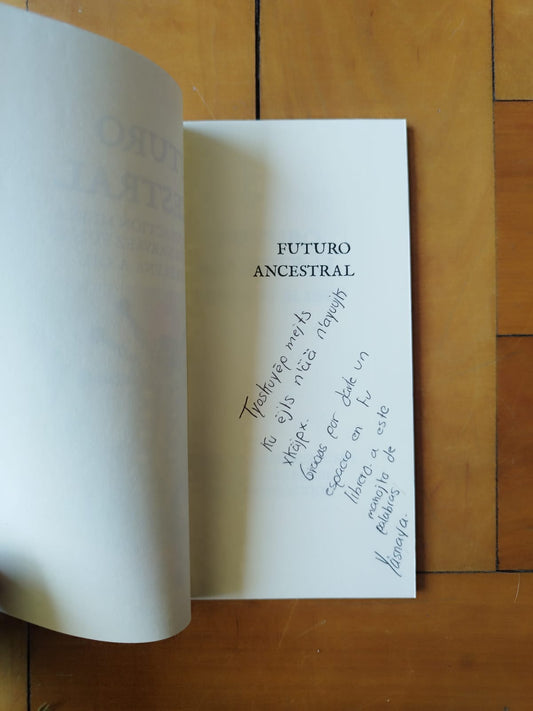 FUTURO
ANCESTRAL
Tyoskuyëp mejts
ku ëjts n'ää n'ayuujk
xkäjpx.
Gracias por darle un
espacio en tu
librero a este
manojito de
palabras.
Yásnaya.